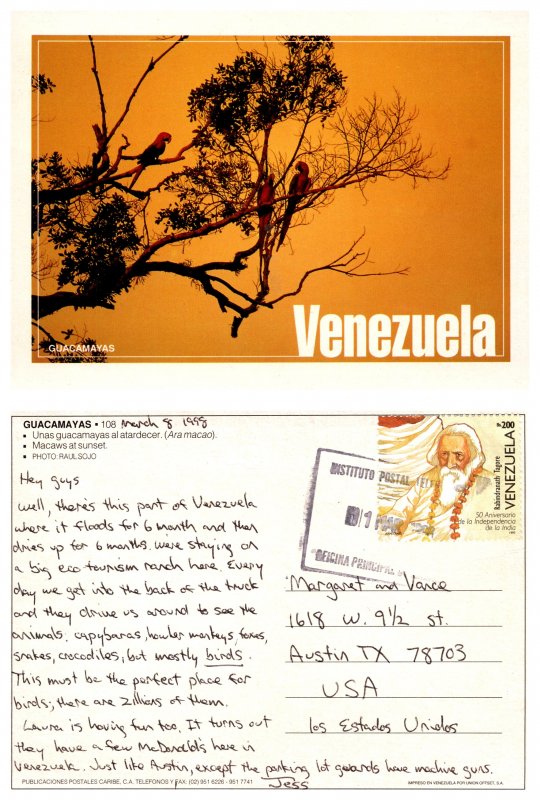 GUACAMAYAS
Venezuela
GUACAMAYAS • 108 March 8 1998
Unas guacamayas al atardecer. (Ara macao).
Macaws at sunset.
PHOTO: RAUL SOJO
Hey guys
Well, there's this part of Venezuela
where it floods for 6 month and then
dries up for 6 months. We're staying on
a big eco tourism ranch here. Every
day we get into the back of the truck
and they drive us around to see the
animals: capybaras, howler monkeys, foxes,
snakes, crocodiles, but mostly birds.
This must be the perfect place for
birds; there are zillions of them.
Laura is having fun too. It turns out
they have a few McDonald's here in
Venezuela. Just like Austin, except the parking lot guards have machine guns.
Jess
Bs200
VENEZUELA
Rabindranath Tagore
50 Aniversario
de la Independencia
de la India
INSTITUTO POSTAL
OFICINA PRINCIPAL
Margaret and Vance
1618 W. 9½ st.
Austin TX 78703
USA
los Estados Unidos
PUBLICACIONES POSTALES CARIBE, C.A. TELEFONOS Y FAX: (02) 951 6226 - 951 7741
IMPRESO EN VENEZUELA POR UNION OFFSET, S.A.